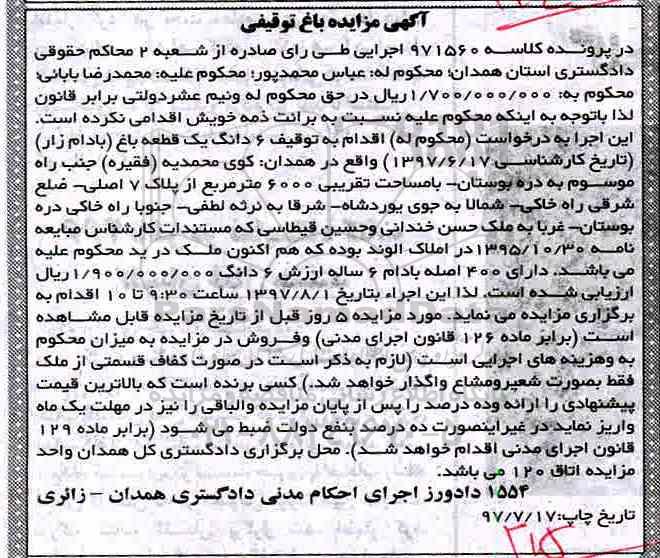 آگهی مزایده باغ توقیفی
در پرونده کلاسه ۹۷۱۵۶۰ اجرایی طی رای صادره از شعبه ۲ محاکم حقوقی
دادگستری استان همدان؛ محکوم له: عباس محمدپور؛ محکوم علیه: محمدرضا بابائی؛
محکوم به: ۱/۷۰۰/۰۰۰/۰۰۰ریال در حق محکوم له ونیم عشردولتی برابر قانون
لذا باتوجه به اینکه محکوم علیه نسبت به برائت ذمه خویش اقدامی نکرده است.
این اجرا به درخواست (محکوم له) اقدام به توقیف ۶ دانگ یک قطعه باغ (بادام زار)
(تاریخ کارشناسی ۱۳۹۷/۶/۱۷) واقع در همدان: کوی محمدیه (فقیره) جنب راه
موسوم به دره بوستان- بامساحت تقریبی ۶۰۰۰ مترمربع از پلاک ۷ اصلی- ضلع
شرقی راه خاکی- شمالا به جوی یوردشاه- شرقا به نرثه لطفی- جنوبا راه خاکی دره
بوستان- غربا به ملک حسن خندانی وحسین قیطاسی که مستندات کارشناس مبایعه
نامه ۱۳۹۵/۱۰/۳۰در املاک الوند بوده که هم اکنون ملک در ید محکوم علیه
می باشد. دارای ۴۰۰ اصله بادام ۶ ساله ارزش ۶ دانگ ۱/۹۰۰/۰۰۰/۰۰۰ریال
ارزیابی شده است. لذا این اجراء بتاریخ ۱۳۹۷/۸/۱ ساعت ۹:۳۰ تا ۱۰ اقدام به
برگزاری مزایده می نماید. مورد مزایده ۵ روز قبل از تاریخ مزایده قابل مشاهده
است (برابر ماده ۱۲۶ قانون اجرای مدنی) وفروش در مزایده به میزان محکوم
به وهزینه های اجرایی است (لازم به ذکر است در صورت کفاف قسمتی از ملک
فقط بصورت شعیرومشاع واگذار خواهد شد.) کسی برنده است که بالاترین قیمت
پیشنهادی را ارائه وده درصد را پس از پایان مزایده والباقی را نیز در مهلت یک ماه
واریز نماید در غیراینصورت ده درصد بنفع دولت ضبط می شود (برابر ماده ۱۲۹
قانون اجرای مدنی اقدام خواهد شد). محل برگزاری دادگستری کل همدان واحد
مزایده اتاق ۱۲۰ می باشد.
۱۵۵۴ دادورز اجرای احکام مدنی دادگستری همدان - زائری
تاریخ چاپ:۹۷/۷/۱۷